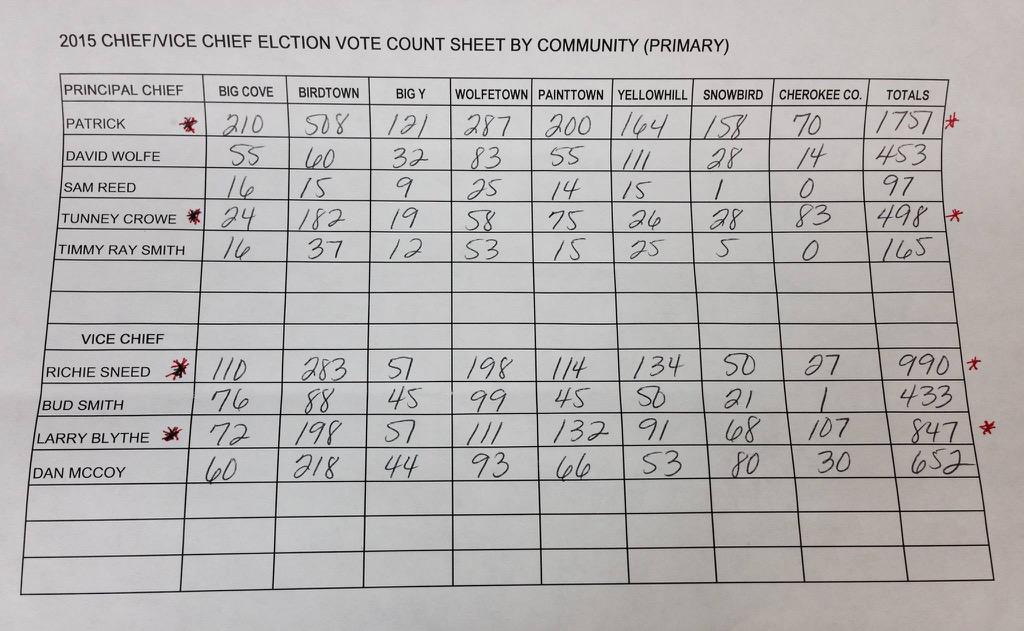 2015 CHIEF/VICE CHIEF ELCTION VOTE COUNT SHEET BY COMMUNITY (PRIMARY)
PRINCIPAL CHIEF BIG COVE BIRDTOWN BIG Y WOLFETOWN PAINTTOWN YELLOWHILL SNOWBIRD CHEROKEE CO. TOTALS
PATRICK * 210 508 121 287 200 164 158 70 1757 *
DAVID WOLFE 55 60 32 83 55 111 28 14 453
SAM REED 16 15 9 25 14 15 1 0 97
TUNNEY CROWE * 24 182 19 58 75 26 28 83 498 *
TIMMY RAY SMITH 16 37 12 53 15 25 5 0 165
VICE CHIEF
RICHIE SNEED * 110 283 51 198 114 134 50 27 990 *
BUD SMITH 76 88 45 99 45 50 21 1 433
LARRY BLYTHE * 72 198 57 111 132 91 68 107 847 *
DAN MCCOY 60 218 44 93 66 53 80 30 652